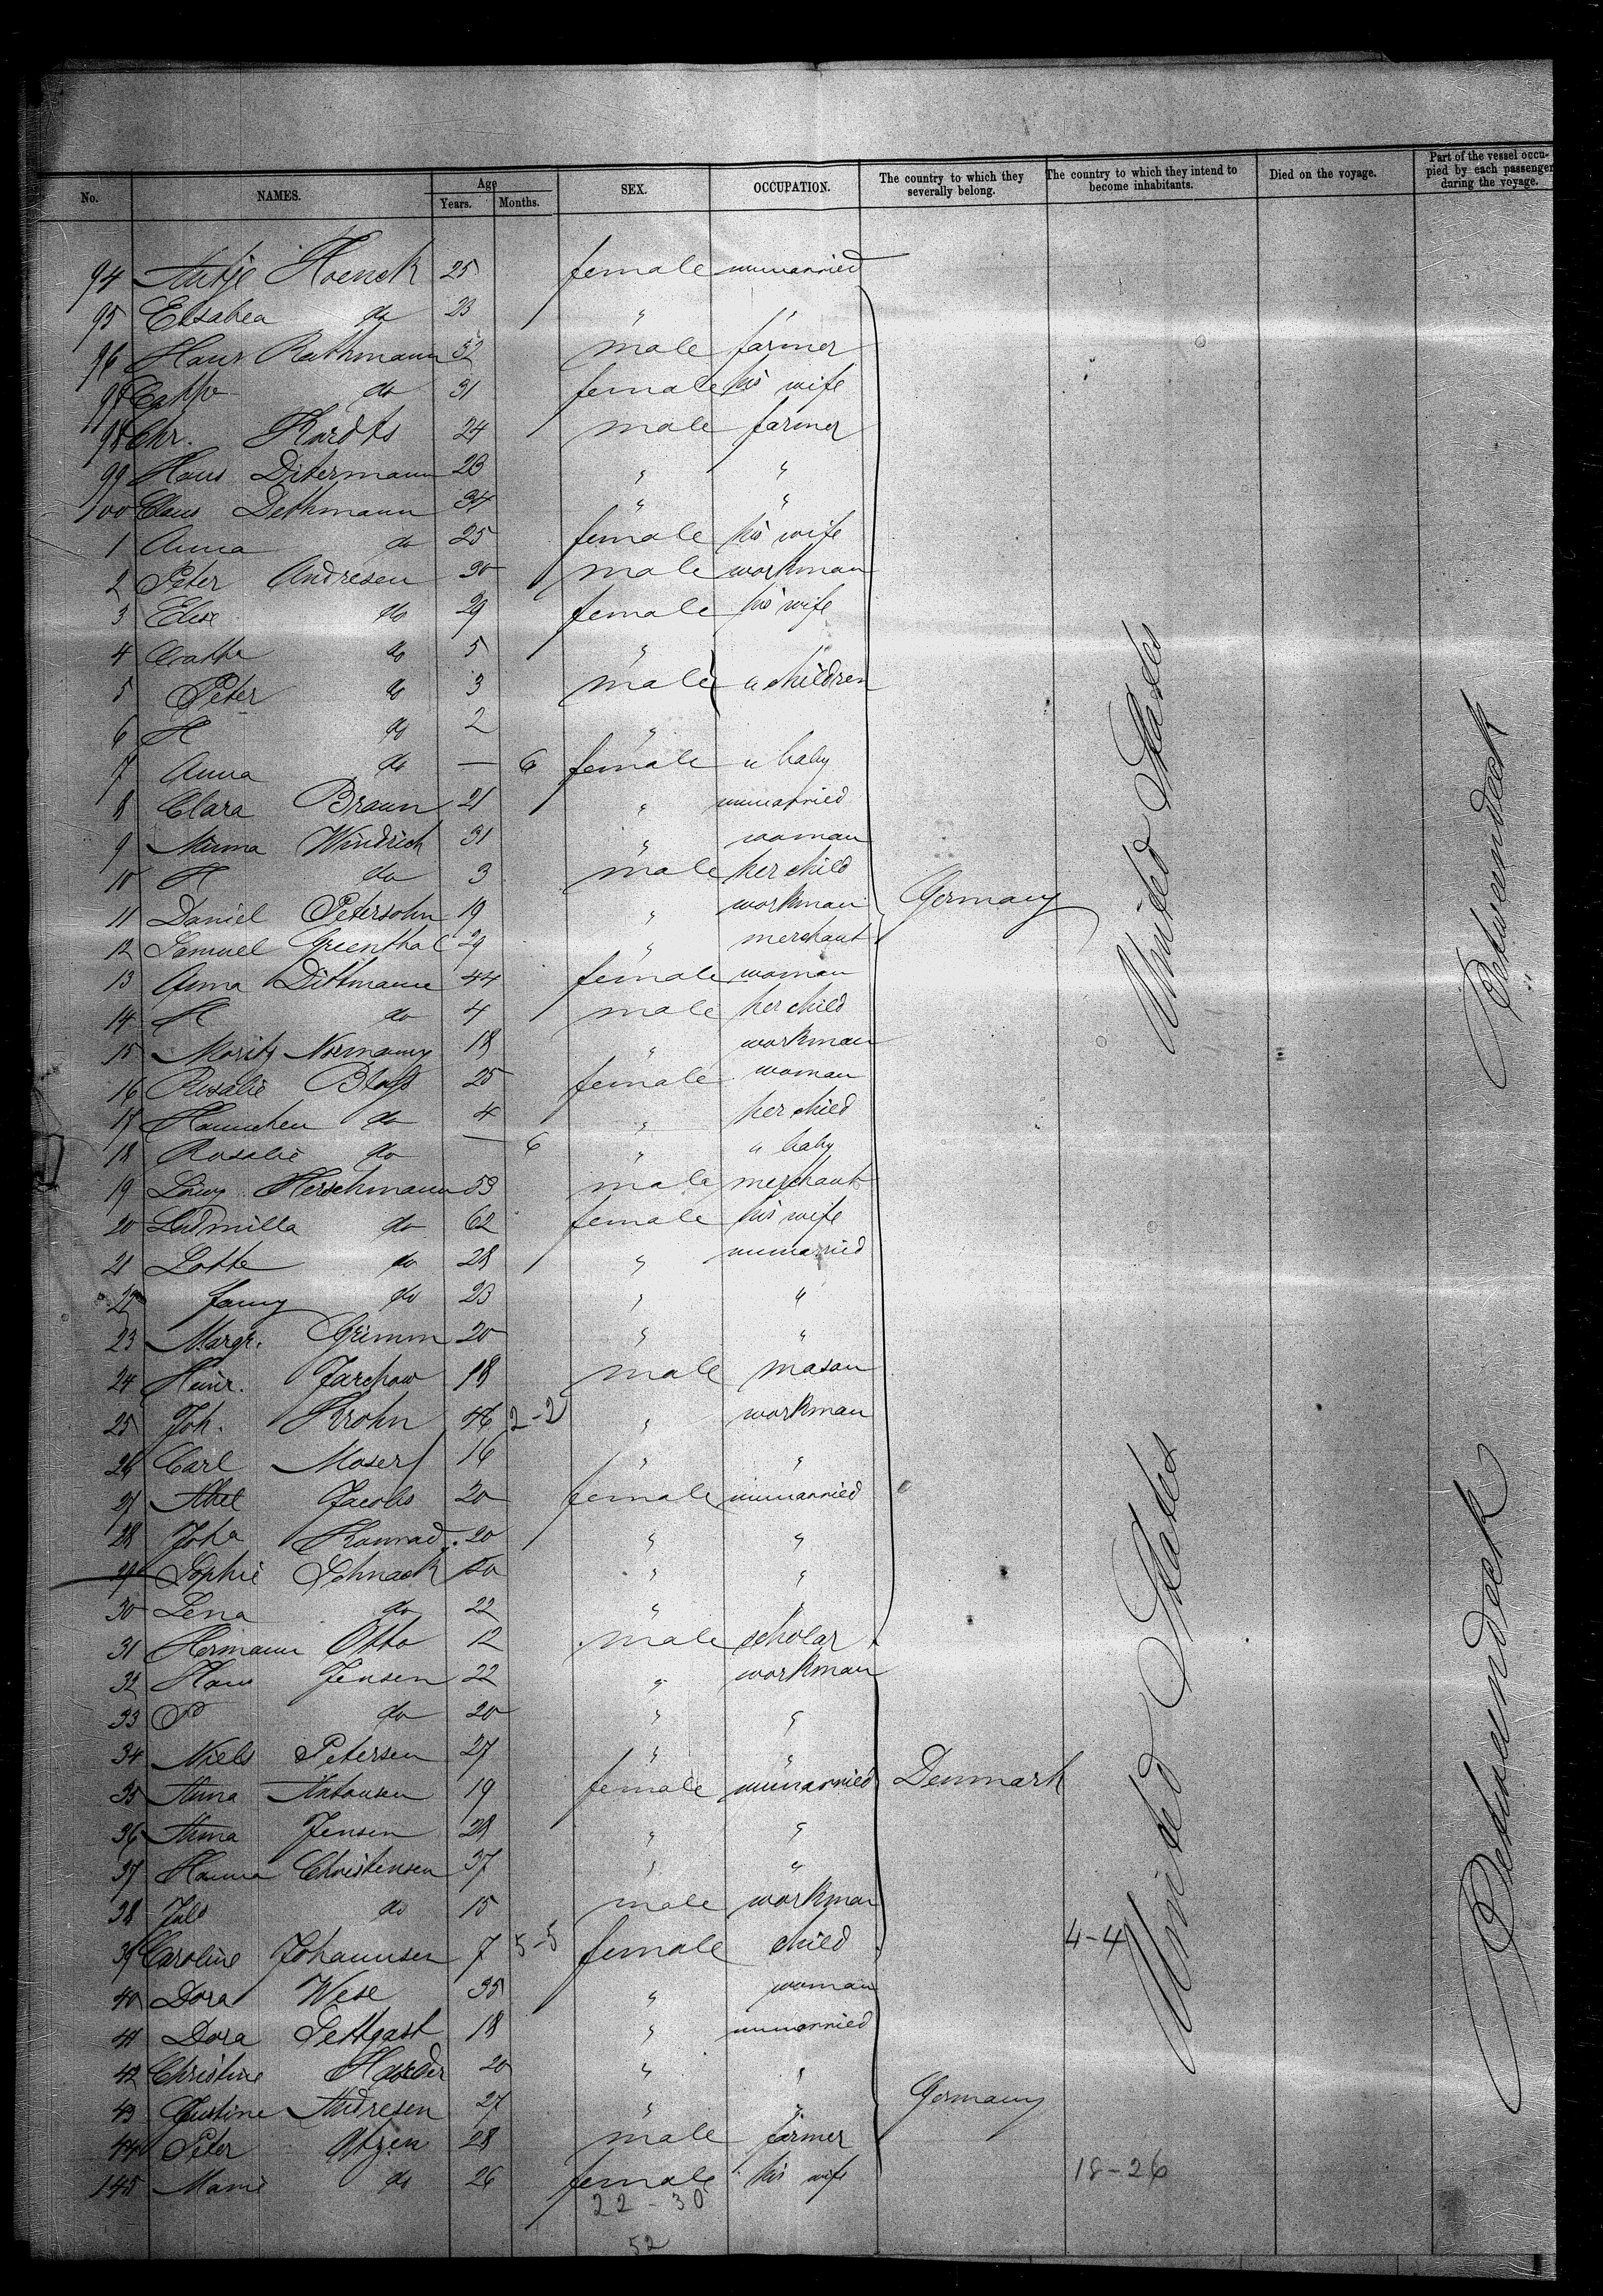 No. NAMES. Age Years. Months. SEX. OCCUPATION. The country to which they severally belong. The country to which they intend to become inhabitants. Died on the voyage. Part of the vessel occupied by each passenger during the voyage.
94 Antje Hoenck 25 female unmarried
95 Elsabea do 23 " "
96 Hans Rathmann 32 male farmer
97 do 31 female his wife
98 Chr. Kardts 24 male farmer
99 Hans Ditermann 23 " "
100 Claus Dethmann 34 " "
1 Anna do 25 female his wife
2 Peter Andresen 30 male workman
3 Elise do 29 female his wife
4 Catha do 5 "
5 Peter do 3 male } " children
6 H do 2 "
7 Anna do — 6 female " baby
8 Clara Braun 21 " unmarried
9 Minna Windrich 31 " woman
10 H do 3 male her child
11 Daniel Petersohn 19 " workman Germany
12 Samuel Greenthal 29 " merchant
13 Anna Dittmann 44 female woman
14 H do 4 male her child
15 Moritz 18 " workman
16 Rosalie 25 female woman
17 Hannchen do 4 " her child
18 Rosalie do — 6 " " baby
19 Löwy Herschmann 53 male merchant
20 Ludmilla do 62 female his wife
21 Lotte do 28 " unmarried
22 Fanny do 23 " "
23 Margr. Grimm 20 " "
24 Heinr. Jarchow 18 male mason
25 Joh. Krohn 46 2-2 " workman
26 Carl Moser 16 " "
27 Abel Jacobs 20 female unmarried
28 Joha Konrad 20 " "
29 Sophie Schnack 50 " "
30 Lena do 22 " "
31 Hermann Otto 12 male scholar
32 Hans Jensen 22 " workman
33 P do 20 " "
34 Niels Petersen 27 " "
35 Anna Antonsen 19 female unmarried Denmark
36 Anna Jensen 28 " "
37 Hanna Christensen 37 " "
38 do 15 male workman
39 Caroline Johannsen 7 5-5 female child 4-4
40 Dora Wese 35 " woman
41 Dora Pettgast 18 " unmarried
42 Christine Harder 20 " "
43 Justine Andresen 27 " " Germany
44 Peter Atzen 28 male farmer
145 Marie do 26 female his wife 18-26
22-30
52
United States
Betweendeck
United States
Betweendeck